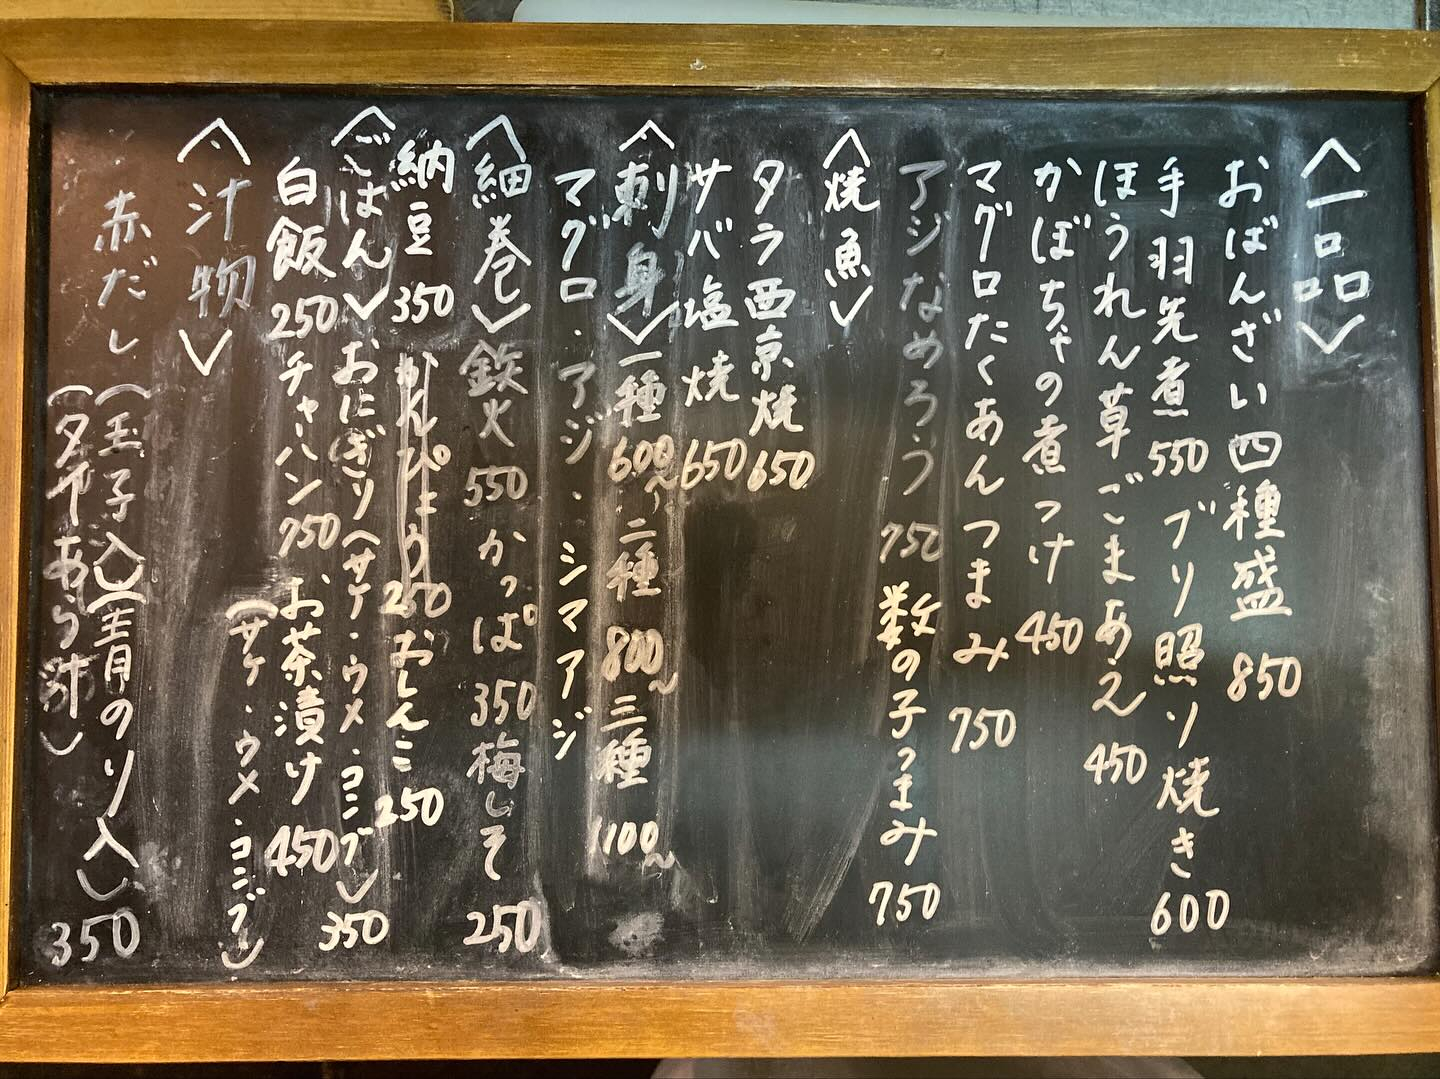 〈一品〉
おばんざい四種盛 850
手羽先煮 550 ブリ照り焼き 600
ほうれん草ごまあえ 450
かぼちゃの煮つけ 450
マグロたくあんつまみ 750
アジなめろう 750 数の子つまみ 750
〈焼魚〉
タラ西京焼 650
サバ塩焼 650
〈刺身〉一種 600〜 二種 800〜 三種 1100〜
マグロ・アジ・シマアジ
〈細巻〉鉄火 550 かっぱ 350 梅しそ 250
納豆 350 かんぴょう 250 おしんこ 250
〈ごはん〉おにぎり(サケ・ウメ・コンブ) 350
白飯 250 チャーハン 750 お茶漬け 450
(サケ・ウメ・コンブ)
〈汁物〉
赤だし(玉子入)(青のり入) 350
(あら汁)